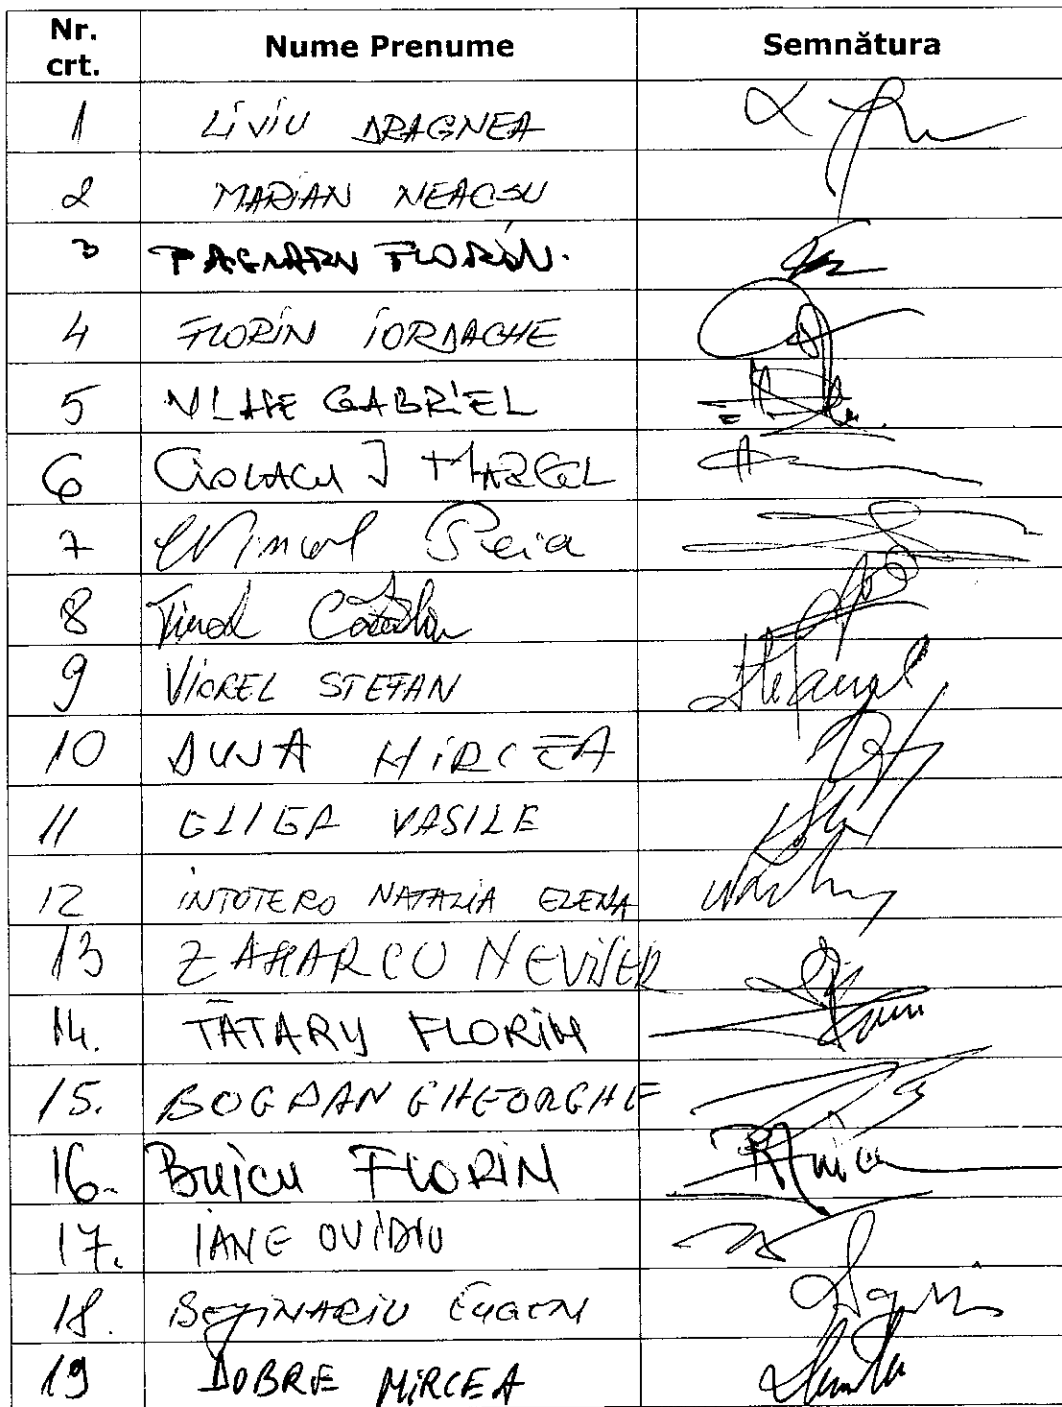 Nr. crt. Nume Prenume Semnătura
1 LIVIU DRAGNEA
2 MARIAN NEACSU
3 FLORIN.
4 FLORIN IORDACHE
5 VLASE GABRIEL
6 CIOLACU I MARCEL
7
8 Catalin
9 VIOREL STEFAN Stefanel
10 DUSA MIRCEA
11 GLIGA VASILE
12 INTOTERO NATALIA ELENA
13 ZAHARCU NEVISER
14. TATARU FLORIN
15. BOGDAN GHEORGHE
16. BUICU FLORIN
17. IANE OVIDIU
18. BEJINARIU EUGEN
19 DOBRE MIRCEA